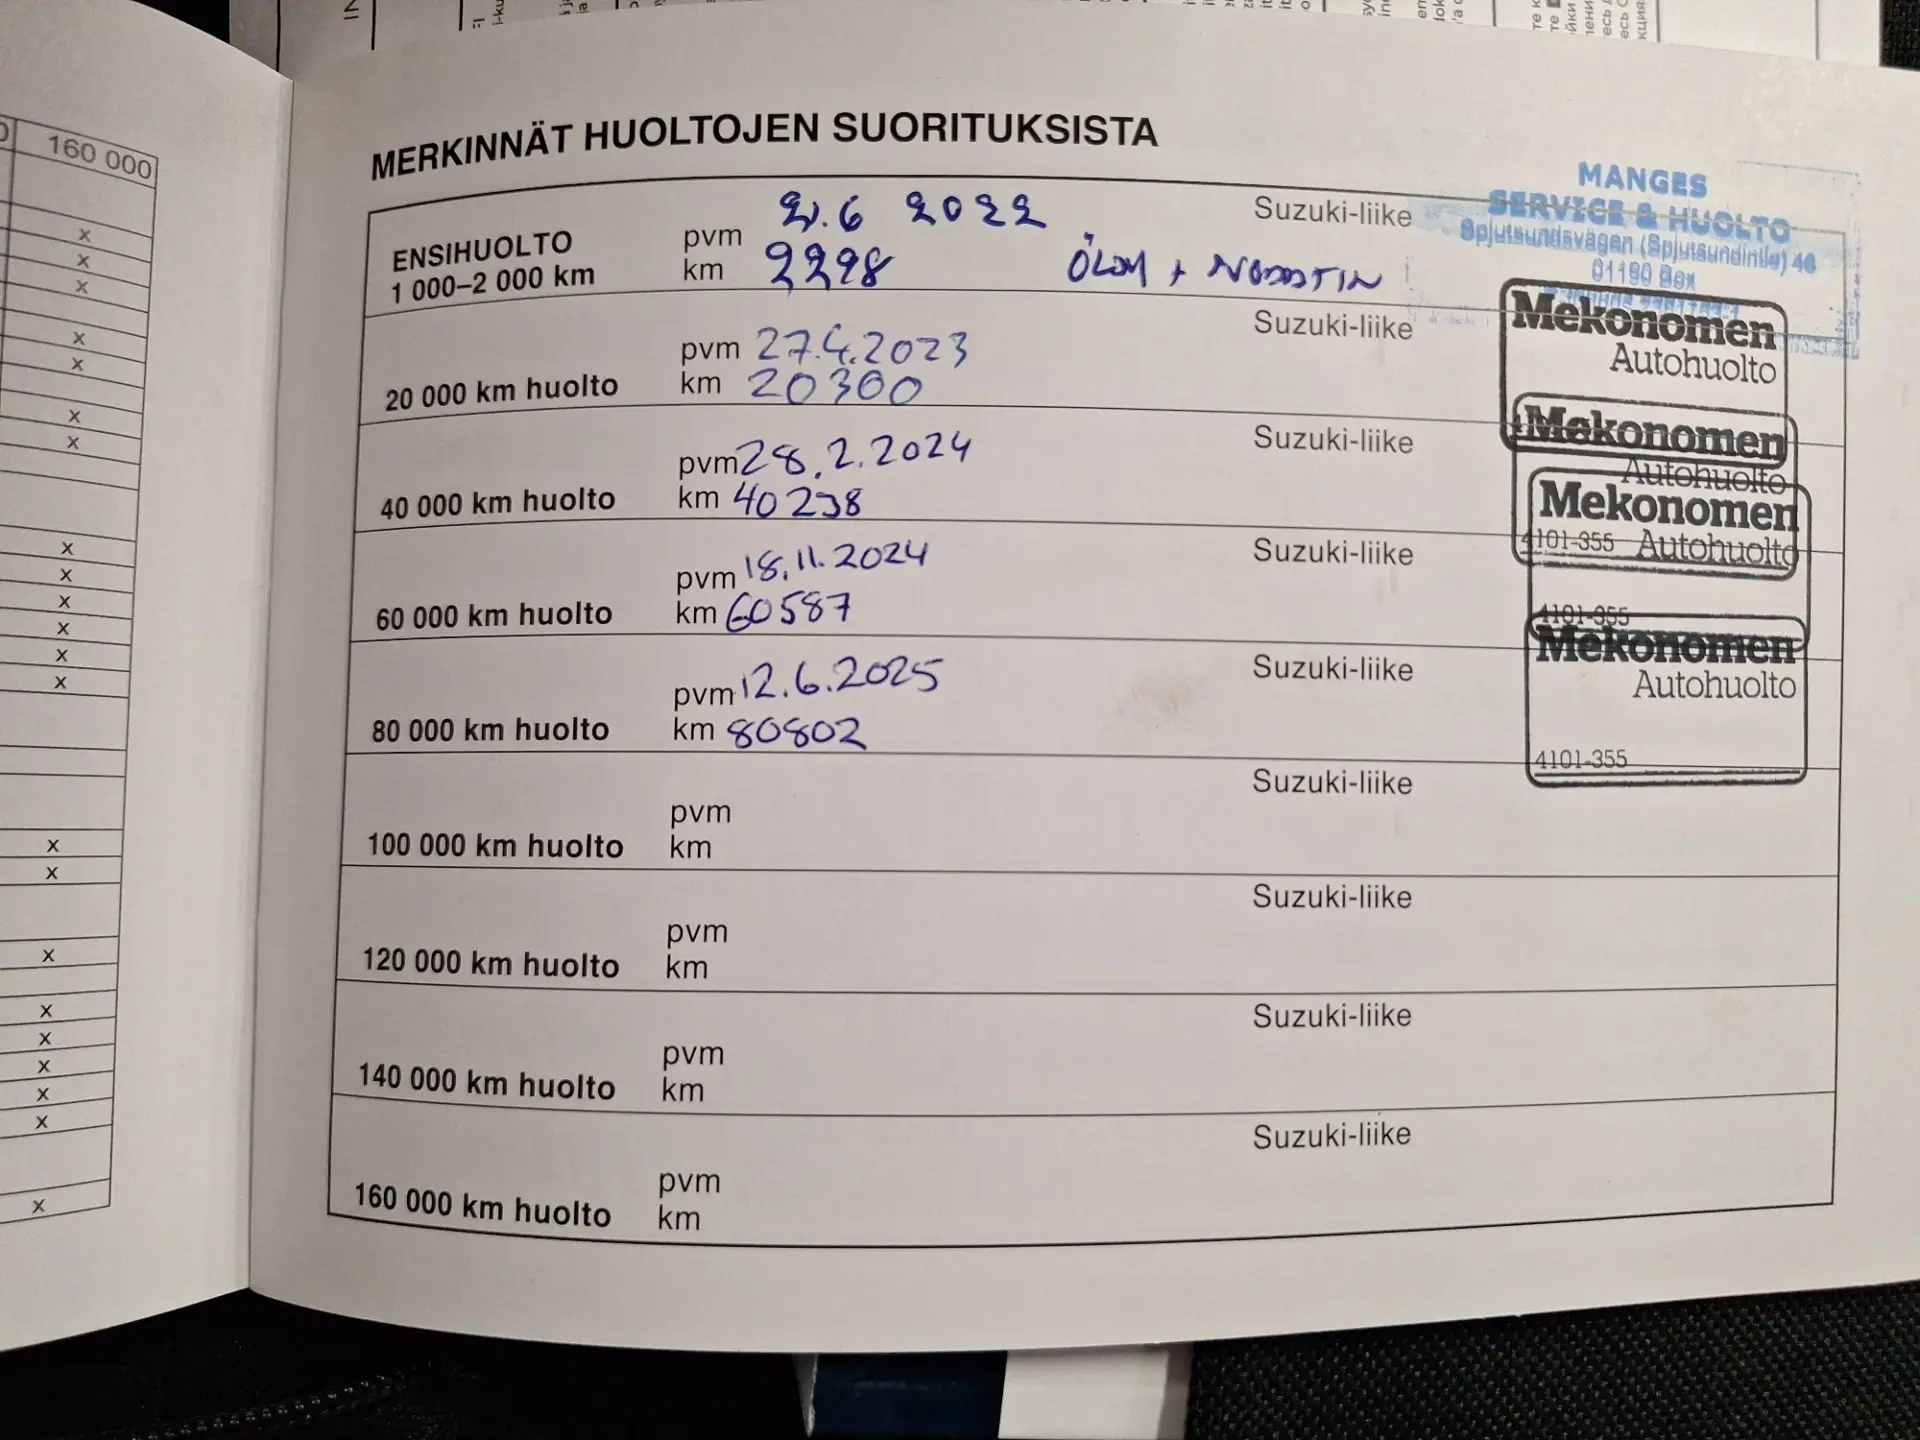 160 000
MERKINNÄT HUOLTOJEN SUORITUKSISTA
MANGES
SERVICE & HUOLTO
Spjutsundsvägen (Spjutsundintie) 46
01190 Box
ENSIHUOLTO
1 000–2 000 km
pvm 2.6 2022
km 2298
ÖLJY +
Suzuki-liike
20 000 km huolto
pvm 27.4.2023
km 20300
Suzuki-liike
Mekonomen
Autohuolto
40 000 km huolto
pvm 28.2.2024
km 40238
Suzuki-liike
Mekonomen
Autohuolto
4101-355
60 000 km huolto
pvm 18.11.2024
km 60587
Suzuki-liike
Mekonomen
Autohuolto
4101-355
80 000 km huolto
pvm 12.6.2025
km 80802
Suzuki-liike
Mekonomen
Autohuolto
4101-355
100 000 km huolto
pvm
km
Suzuki-liike
120 000 km huolto
pvm
km
Suzuki-liike
140 000 km huolto
pvm
km
Suzuki-liike
160 000 km huolto
pvm
km
Suzuki-liike